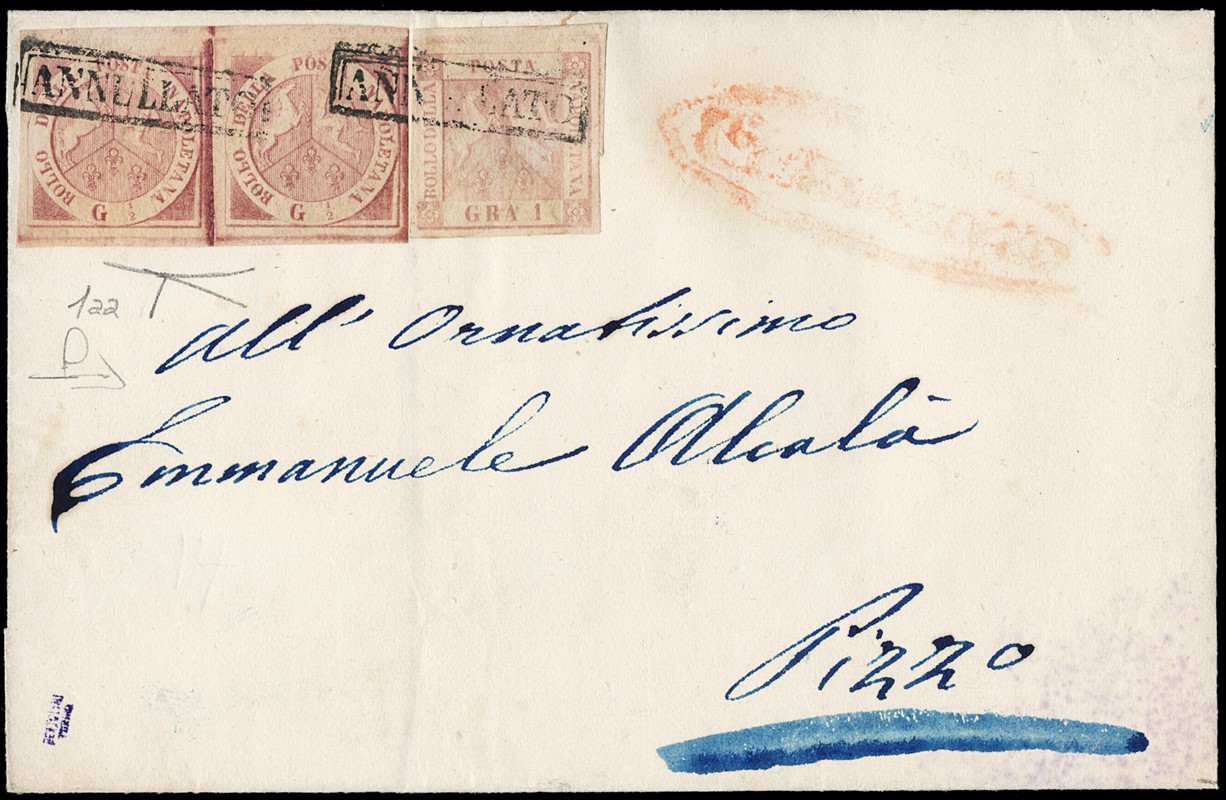 ANNULLATO
ANNULLATO
BOLLO DELLA POSTA NAPOLETANA
G 1/2
BOLLO DELLA POSTA NAPOLETANA
G 1/2
POSTA
BOLLO DELLA
NAPOLETANA
GRA 1
122
All' Ornatissimo
Emmanuele Alcalà
Pizzo